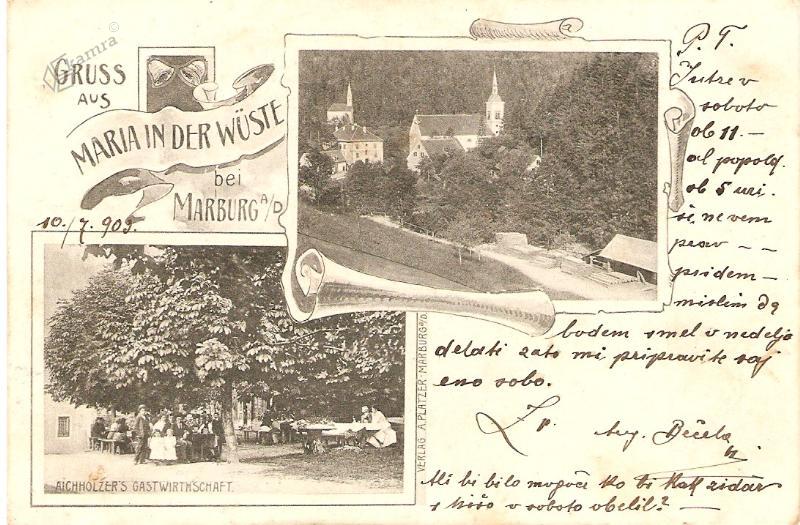 kamra ©
GRUSS
AUS
MARIA IN DER WÜSTE
bei
MARBURG A/D
10./7. 903.
AICHHOLZER'S GASTWIRTHSCHAFT.
VERLAG A. PLATZER. MARBURG A/D.
P. T.
Jutre v
soboto
ob 11. —
al popold.
ob 5 uri.
si, ne vem
prav - -
pridem -
mislim da
bodem smel v nedeljo
delati zato mi pripravite saj
eno sobo.
Avg.
Ali bi bilo mogoče ko bi kak zidar
s hišo v soboto obelil?